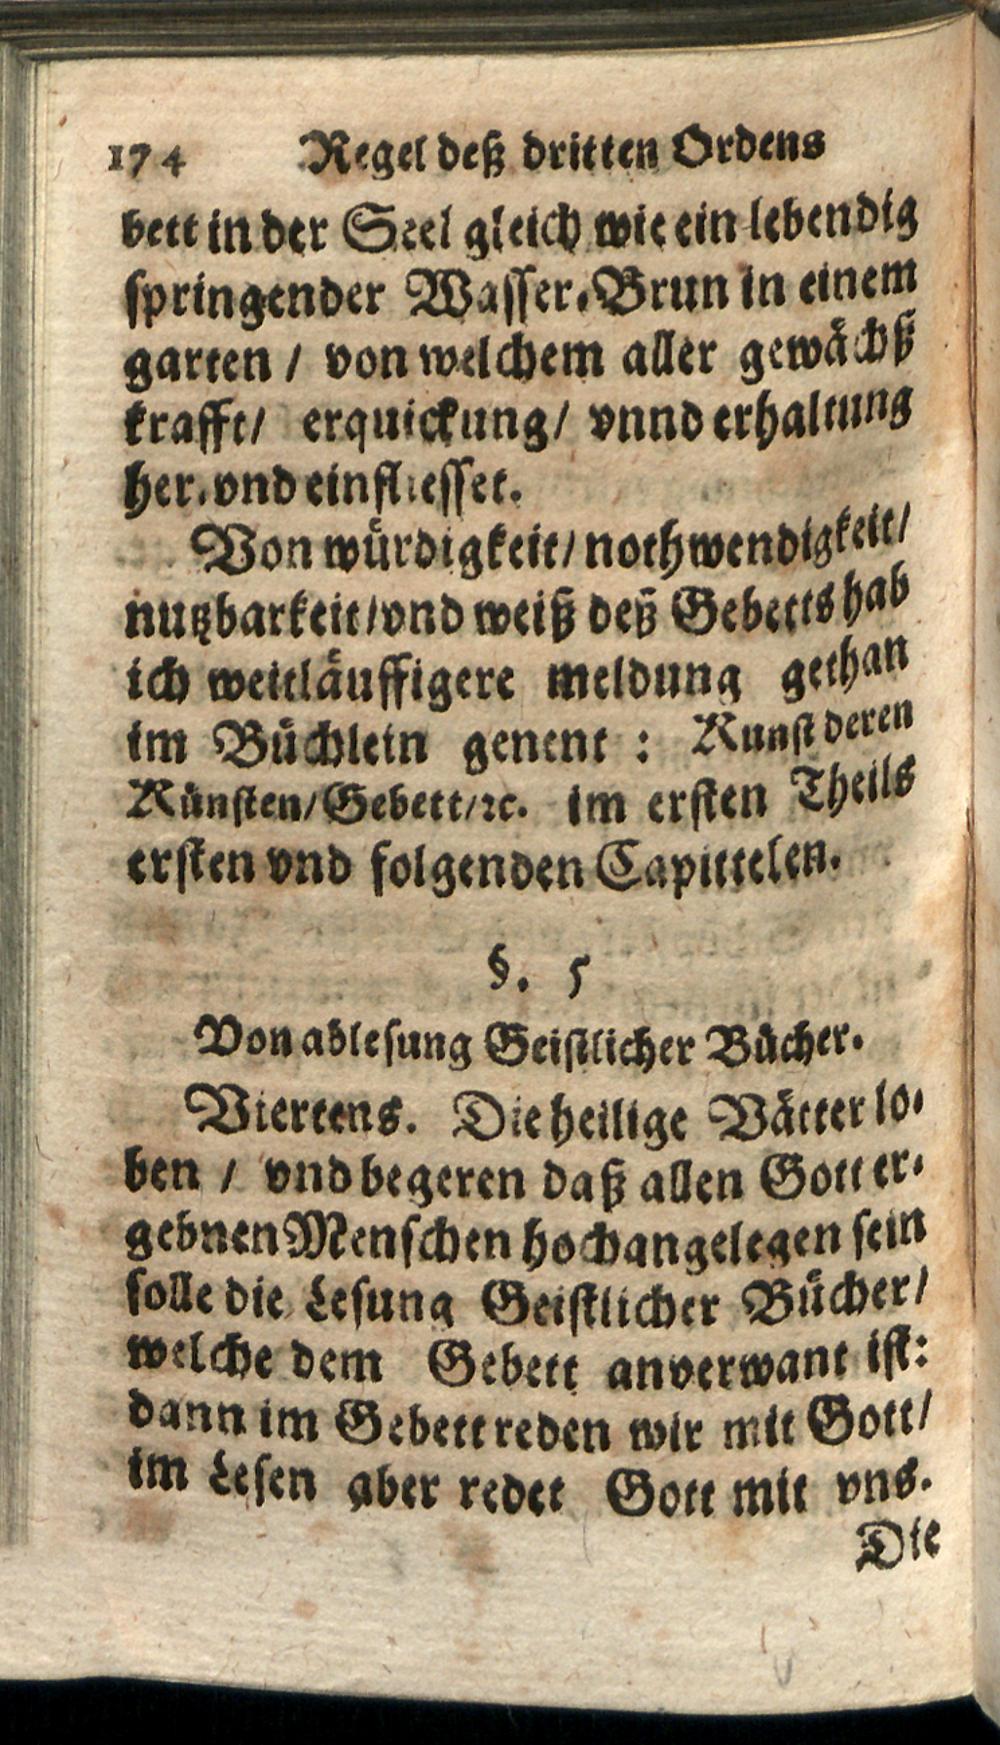 174 Regel deß dritten Ordens
bett in der Seel gleich wie ein lebendig
springender Wasser-Brun in einem
garten / von welchem aller gewächß
krafft / erquickung / vnnd erhaltung
her-vnd einfliesset.
Von würdigkeit / nothwendigkeit /
nutzbarkeit / vnd weiß deß Gebetts hab
ich weitläuffigere meldung gethan
im Büchlein genent : Kunst deren
Künsten / Gebett / ꝛc. im ersten Theils
ersten vnd folgenden Capittelen.
§. 5
Von ablesung Geistlicher Bücher.
Viertens. Die heilige Vätter lo-
ben / vnd begeren daß allen Gott er-
gebnen Menschen hochangelegen sein
solle die Lesung Geistlicher Bücher /
welche dem Gebett anverwant ist:
dann im Gebett reden wir mit Gott /
im Lesen aber redet Gott mit vns.
Die